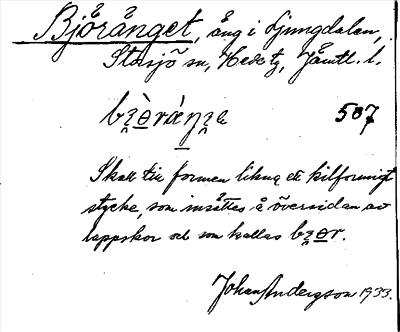 Björånget, äng i Ljungdalen,
Storsjö sn, Hede tg, Jämtl. l.
507
Skall till formen likna ett kilformigt
stycke, som insättes å översidan av
lappskor och som kallas
Johan Anderson 1933.